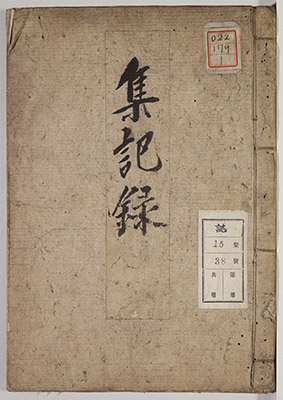 集記録
022
179
1
記
15 架
38 號